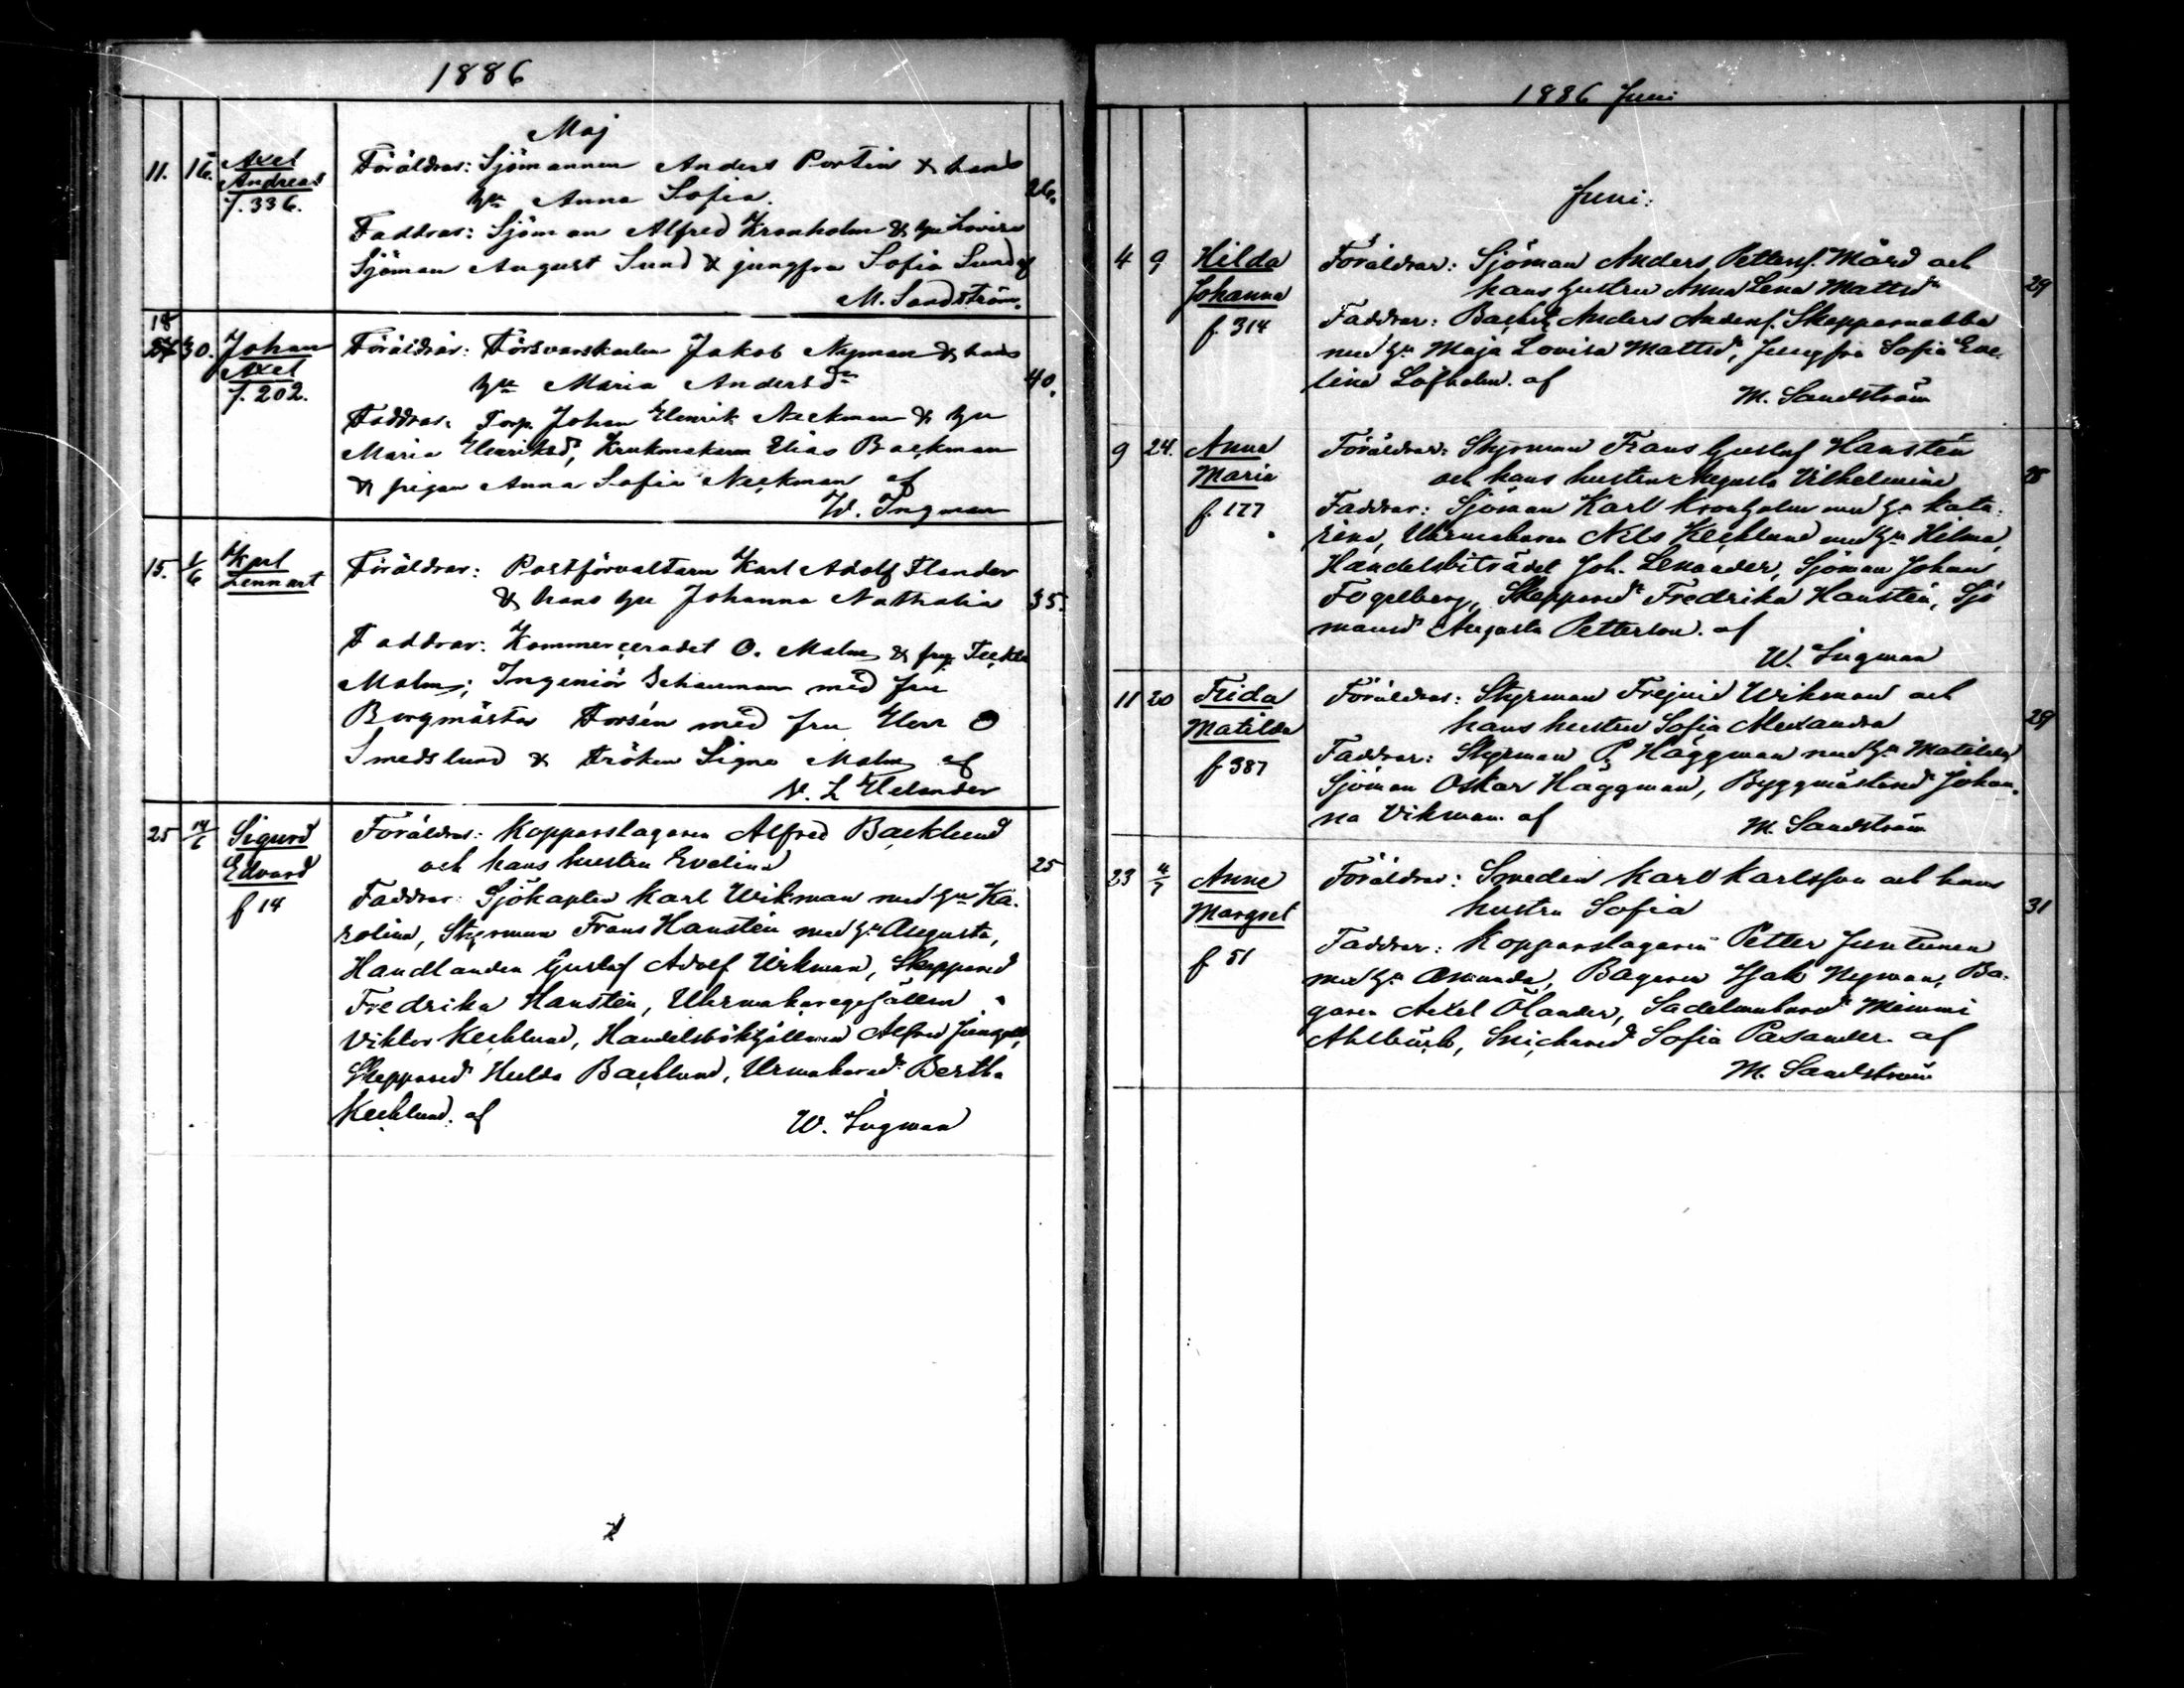 1886
Maj
11. 16. Axel Föräldrar: Sjömannen Anders Portin & hans
Andreas hu Anna Sofia. 26.
f. 336.
Faddrar: Sjöman Alfred Kronholm & hu Lovisa
Sjöman August Sund & jungfru Sofia Sund af
M. Sandström.
18
30. Johan Föräldrar: Försvarskarlen Jakob Nyman & hans
Axel hu Maria Andersdr 40.
f. 202.
Faddrar. Torp. Johan Henrik Neckman & hu
Maria Henriksdr, Krukmakaren Elias Backman
& pigan Anna Sofia Neckman af
W. Ingman
15. 1/6 Karl Föräldrar: Postförvaltaren Karl Adolf Flander
Lennart & hans hu Johanna Nathalia 35.
Faddrar: Kommercerådet O. Malm & fru Teckla
Malm; Ingeniör Schauman med fru
Borgmästar Forsén med fru Herr O
Smedslund & Fröken Signe Malm af
V. L Helander
25 14/6 Sigurd Föräldrar: Kopparslagaren Alfred Backlund
Edvard och hans hustru Evelina 25
f 14 Faddrar: Sjökapten Karl Wikman med hu Ka-
rolina, Styrman Frans Hanstén med hu Augusta,
Handlanden Gustaf Adolf Wikman, Skeppared
Fredrika Hanstén, Uhrmakaregesällen
Viktor Kecklund, Handelsbokhållaren Alfred
Skepparedr Hulda Backlund, Urmakaredr Bertha
Kecklund. af W. Ingman
1886 Juni
Juni:
4 9 Hilda Föräldrar: Sjöman Anders Pettersf. Mård och
Johanna hans hustru Anna Lena Mattsdr 29
f. 314 Faddrar: Anders Andersf. Skepparnabba
med hu Maja Lovisa Mattsdr, Jungfru Sofia Eve-
lina Löfholm. af M. Sandström
9 24. Anna Föräldrar: Styrman Frans Gustaf Hanstén
Maria och hans hustru Augusta Vilhelmina 28
f. 177 Faddrar: Sjöman Karl Kronholm med hu Kata-
rina, Uhrmakaren Nils Kecklund med hu Hilma,
Handelsbiträdet Joh. Lenander, Sjöman Johan
Fogelberg, Skepparedr Fredrika Hanstén, Sjö
mansdr Augusta Petterson. af
W. Ingman
11 20 Frida Föräldrar: Styrman Frejvid Wikman och
Matilda hans hustru Sofia Alexandra 29
f 387 Faddrar: Styrman P. Häggman med hu Matilda,
Sjöman Oskar Häggman, Byggmästaredr Johan-
na Vikman. af M. Sandström
23 4/7 Anna Föräldrar: Smeden Karl Karlsson och hans
Margret hustru Sofia 31
f 51 Faddrar: Kopparslagaren Petter Juntunen
med hu Amanda, Bagaren Isak Nyman, Ba-
garen Axel Ölander, Sadelmakaredr Mimmi
Ahlbäck, Snickaredr Sofia Pasander. af
M. Sandström